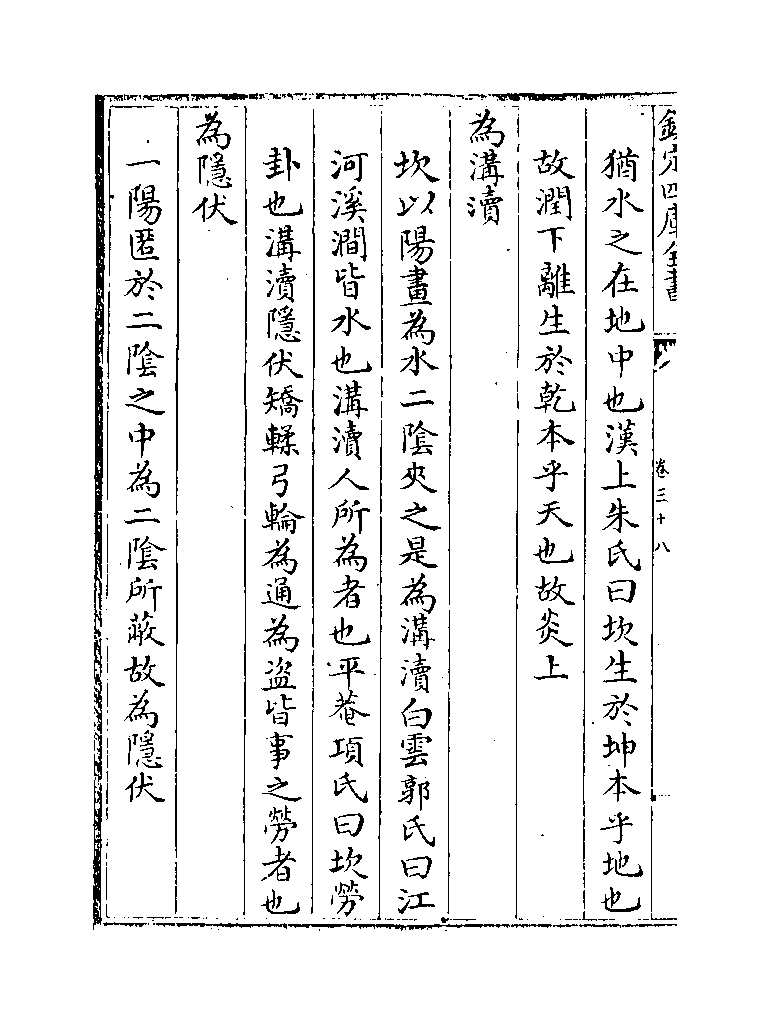 欽定四庫全書
卷三十八
猶水之在地中也漢上朱氏曰坎生於坤本乎地也
故潤下離生於乾本乎天也故炎上
為溝瀆
坎以陽畫為水二陰夾之是為溝瀆白雲郭氏曰江
河溪澗皆水也溝瀆人所為者也平菴項氏曰坎勞
卦也溝瀆隱伏矯輮弓輪為通為盗皆事之勞者也
為隱伏
一陽匿於二陰之中為二陰所蔽故為隱伏